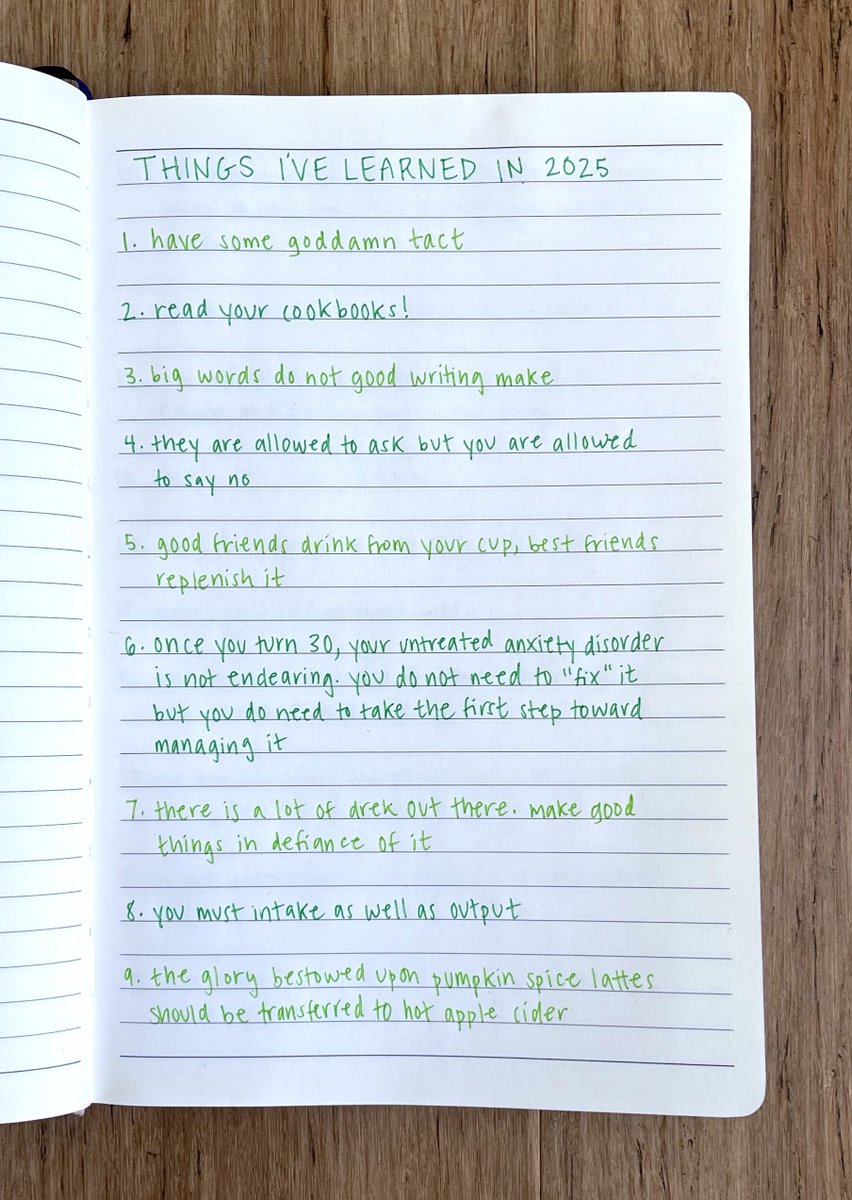 THINGS I'VE LEARNED IN 2025
1. have some goddamn tact
2. read your cookbooks!
3. big words do not good writing make
4. they are allowed to ask but you are allowed
to say no
5. good friends drink from your cup, best friends
replenish it
6. once you turn 30, your untreated anxiety disorder
is not endearing. you do not need to "fix" it
but you do need to take the first step toward
managing it
7. there is a lot of drek out there. make good
things in defiance of it
8. you must intake as well as output
9. the glory bestowed upon pumpkin spice lattes
should be transferred to hot apple cider